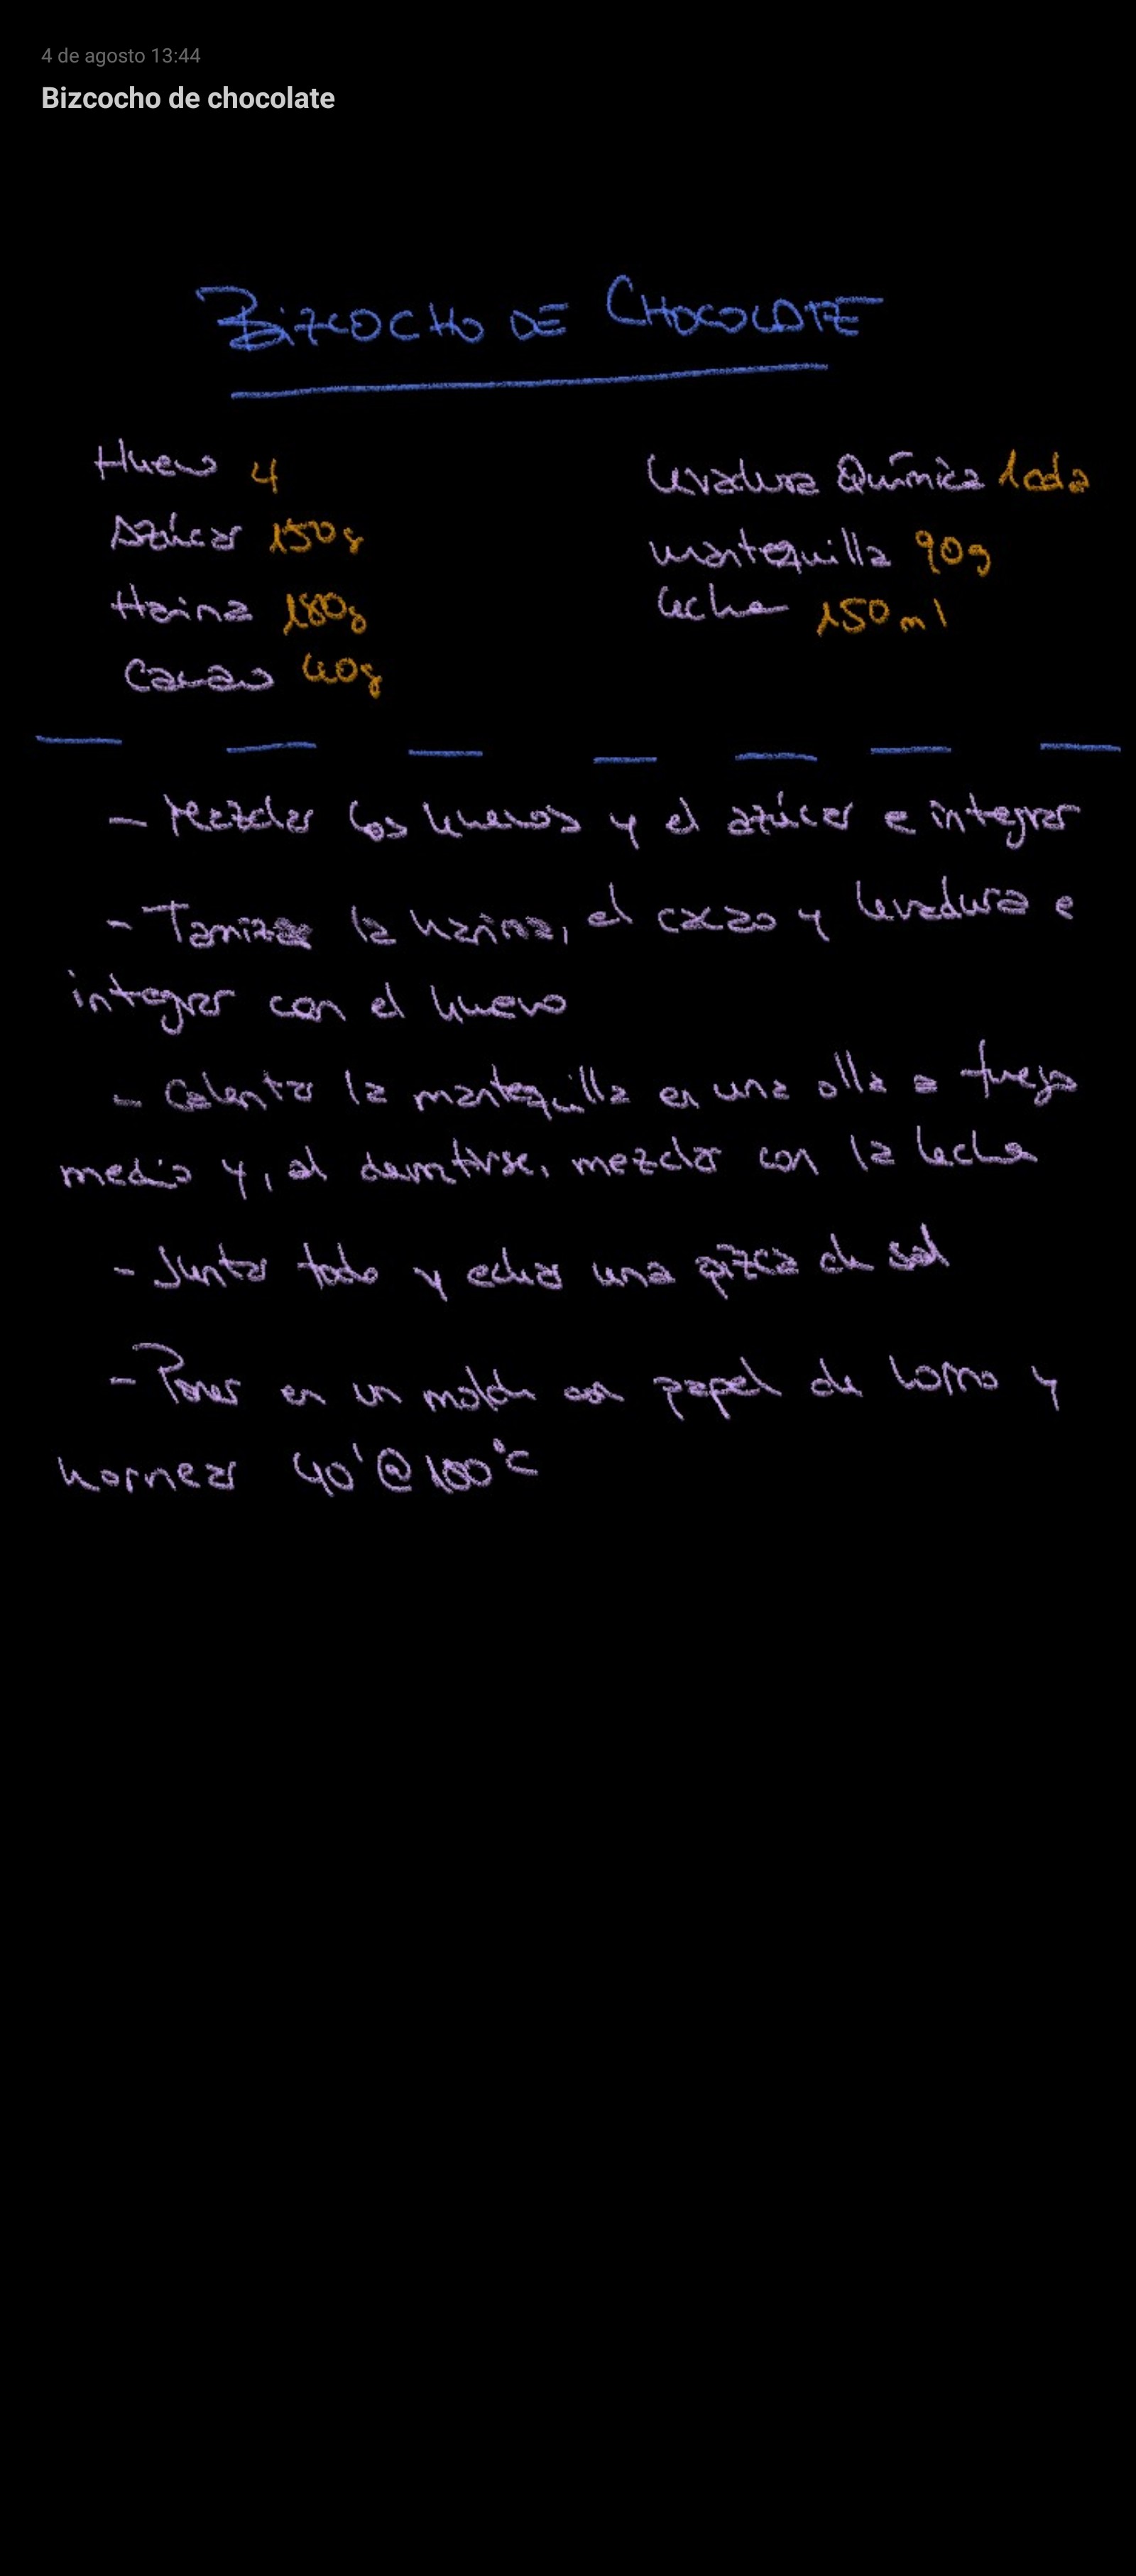 4 de agosto 13:44
Bizcocho de chocolate
BIZCOCHO DE CHOCOLATE
Huevo 4
Levadura Química 1 cda
Azúcar 150g
Mantequilla 90g
Harina 180g
Leche 150 ml
Cacao 40g
- Mezclar los huevos y el azúcar e integrar
- Tamizar la harina, el cacao y levadura e
integrar con el huevo
- Calentar la mantequilla en una olla a fuego
medio y, al derretirse, mezclar con la leche
- Juntar todo y echar una pizca de sal
- Poner en un molde con papel de horno y
hornear 40' @ °C